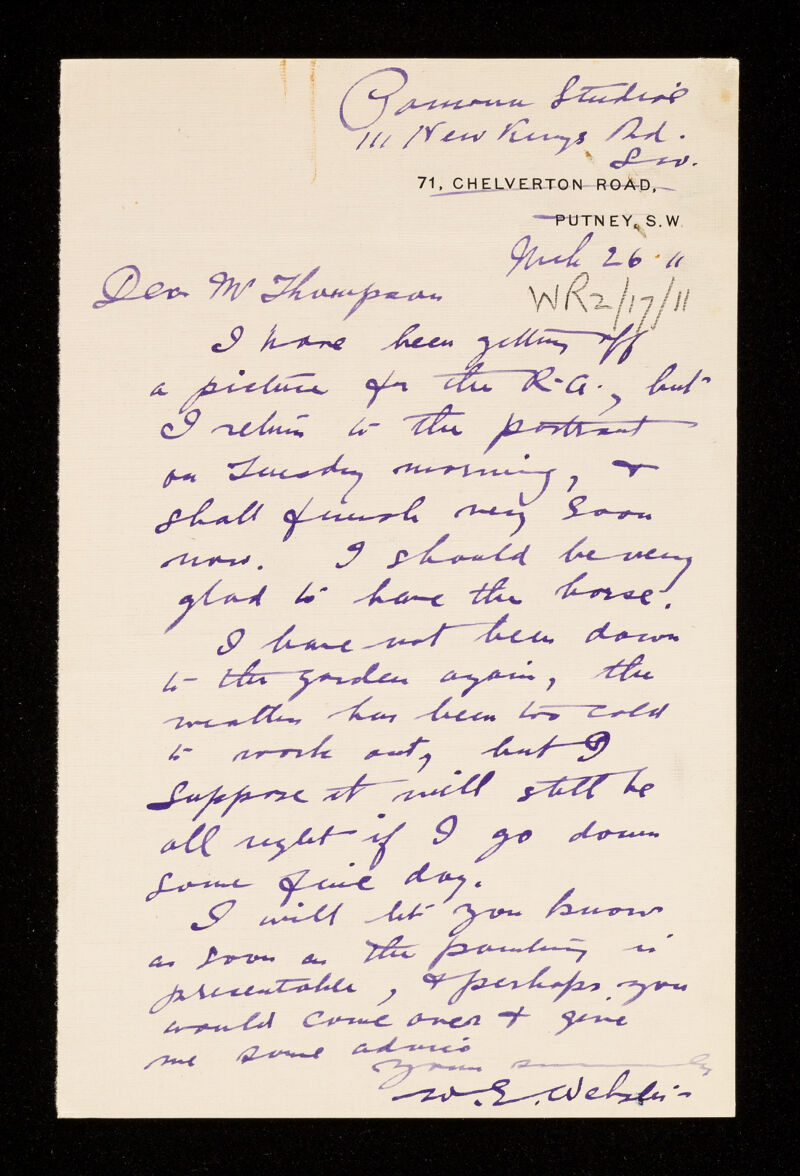 Pomona Studios
111 New Kings Rd.
S.W.
71, CHELVERTON ROAD,
PUTNEY, S.W.
Mch 26 11
WR2/17/11
Dear Mr Thompson
I have been getting off
a picture for the R.A., but
I return to the portrait
on Tuesday morning, &
shall finish very soon
now. I should be very
glad to have the horse.
I have not been down
to the garden again, the
weather has been too cold
to work out, but I
suppose it will still be
all right if I go down
some fine day.
I will let you know
as soon as the painting is
presentable, & perhaps you
would come over & give
me some advice
Yours sincerely
W. E. Webster